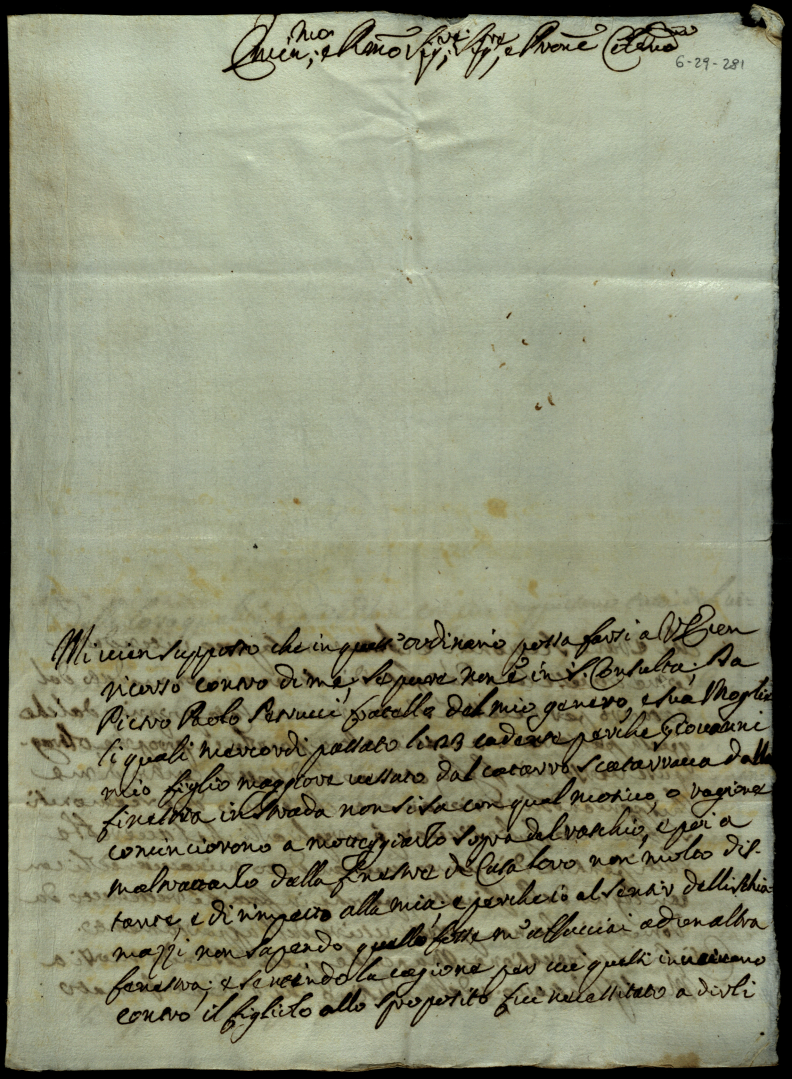 Emin:mo e Rmo Sig:re Sig:re, e Pron̄e Colmo
6-29-281
Mi vien supposto che in quest'ordinario possa farsi a V Em
ricorso contro di me, se pure non è in S. Consulta; Da
Pietro Paolo Petrucci fratello del mio genero, e sua Moglie
li quali mercordi passato li 23 cadente perche Giovanni
mio figlio maggiore vessato dal catarro, scatarrava dalla
finestra in strada non si sa con qual motivo, o ragione
cominciorono a motteggiarlo sopra del raschio, e poi a
maltrattarlo dalla fenestra di Casa loro non molto dis-
tante, e dirimpetto alla mia: e perche io al sentir delli schia-
mazzi non sapendo quello fosse m'affacciai ad un altra
fenestra; e sentendo la cagione per cui questi inveivano
contro il figliolo allo sproposito fui necessitato a dirli